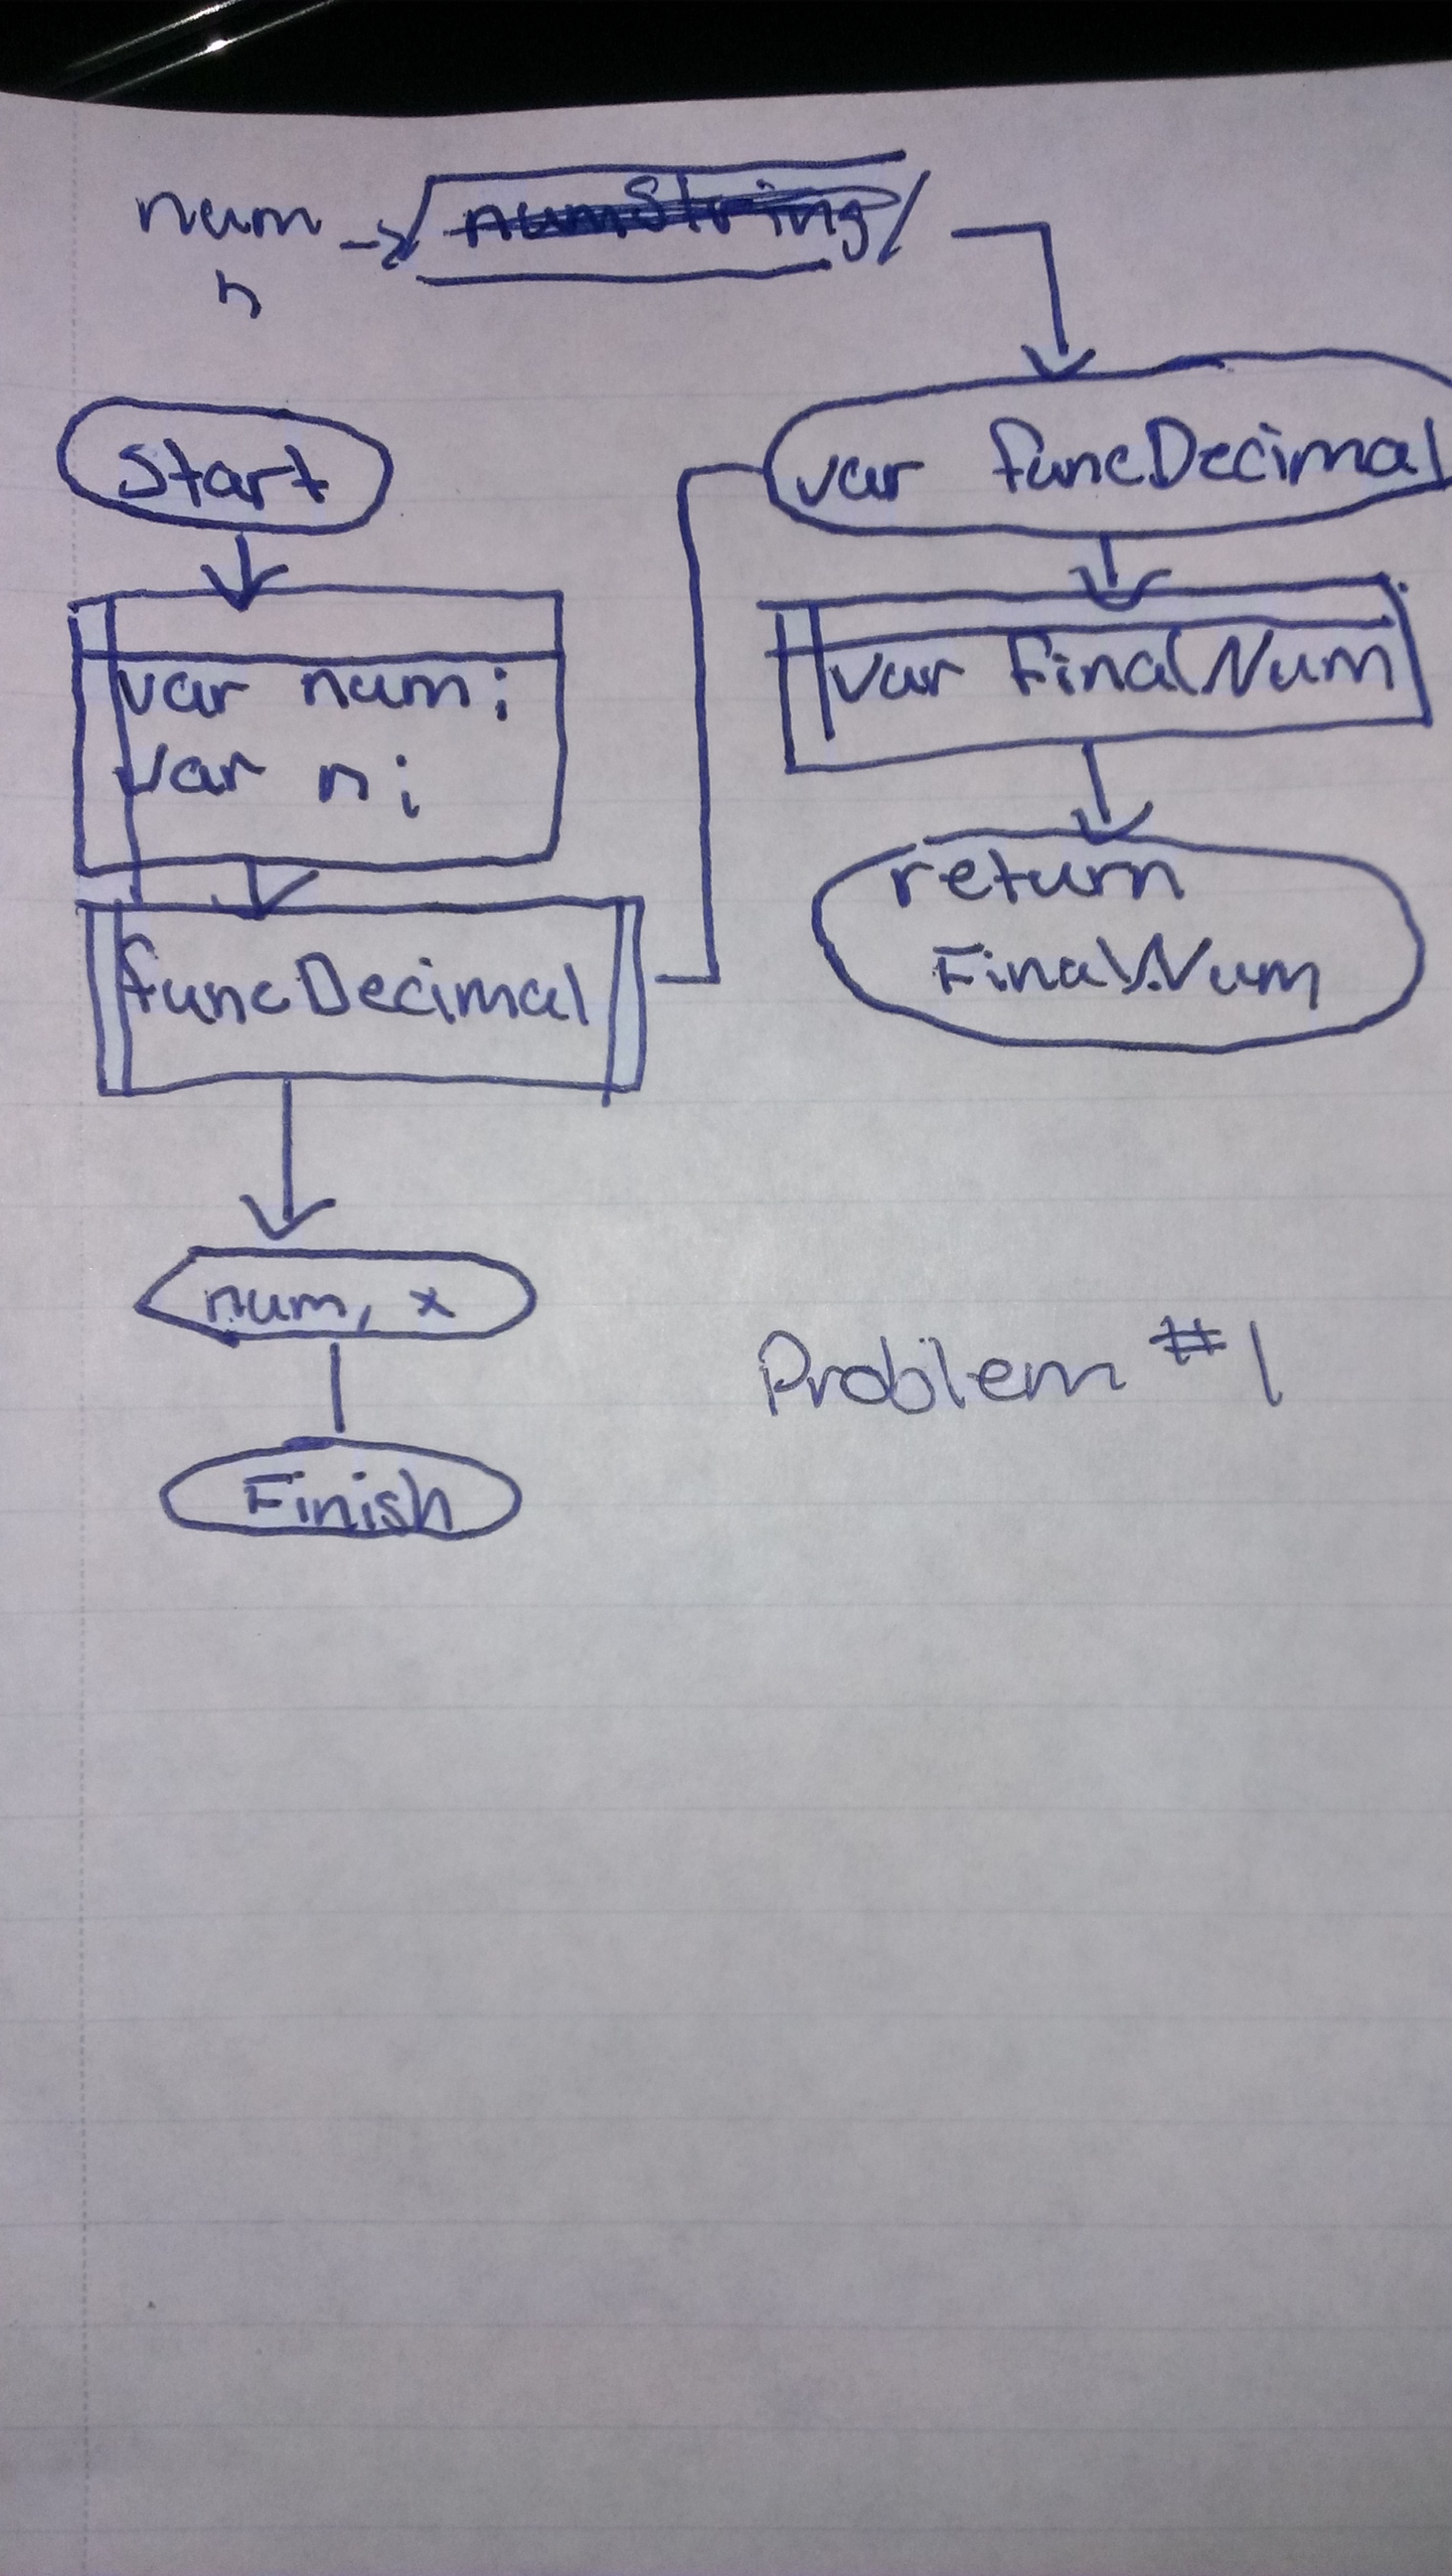 num
n
numString
Start
var num;
var n;
funcDecimal
num, x
Finish
var funcDecimal
var FinalNum
return
FinalNum
Problem #1